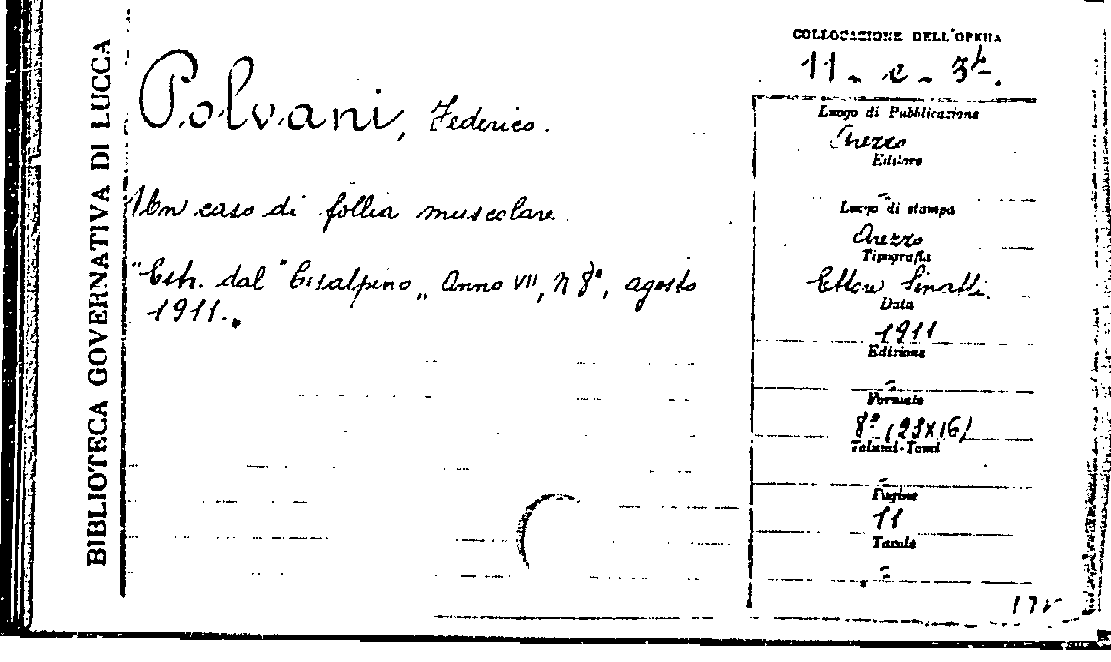 BIBLIOTECA GOVERNATIVA DI LUCCA
Polvani, Federico.
Un caso di follia muscolare.
"Estr. dal "Cesalpino„ Anno VII, N 8°, agosto
1911.„
COLLOCAZIONE DELL'OPERA
11 - c - 3
Luogo di Pubblicazione
Arezzo
Editore
-
Luogo di stampa
Arezzo
Tipografia
Ettore Sinatti.
Data
1911
Edizione
-
Formato
8° (23x16)
Volumi-Tomi
-
Pagine
11
Tavole
-